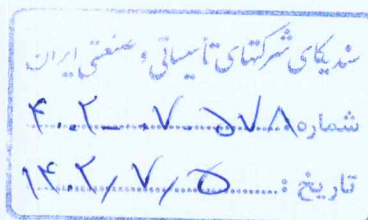 سندیکای شرکتهای تأسیساتی و صنعتی ایران
شماره: ۴۰۲-۰۷-۵۷۸
تاریخ: ۱۴۰۲/۷/۵